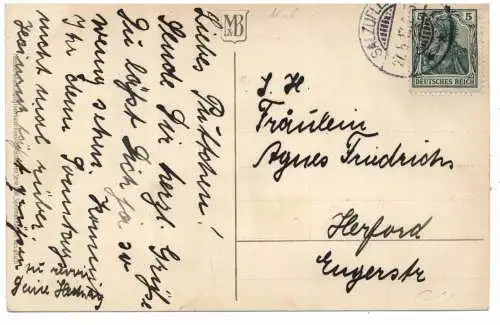 Liebes Püttchen!
Sende Dir herzl. Grüße
Du läßt Dich ja so
wenig sehn. Kommt
Ihr denn Sonntag
nicht mal rüber.
zu
Deine Hedwig
M
B
&
SALZUFL
5
5
DEUTSCHES REICH
S. H.
Fräulein
Agnes Friedrichs
Herford
Engerstr